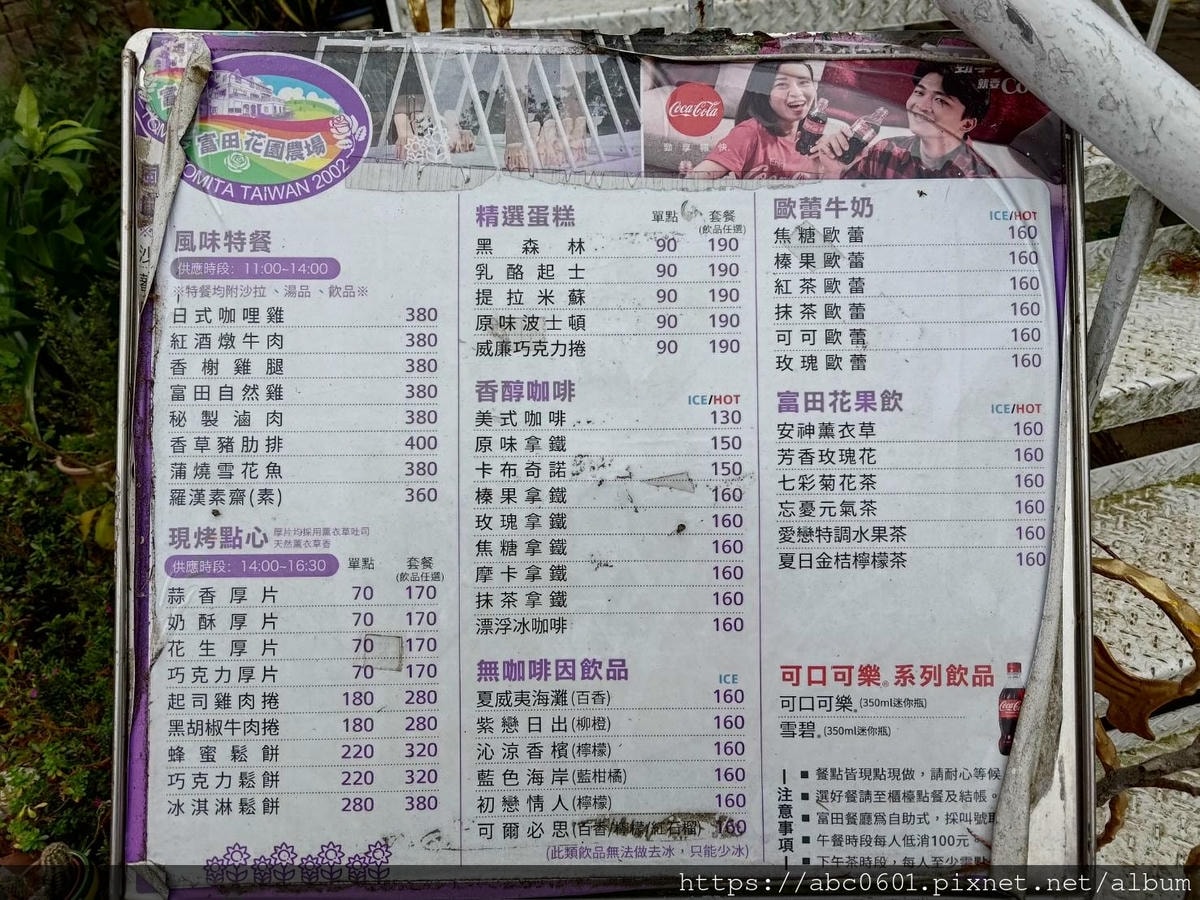 富田花園農場
TOMITA TAIWAN 2002
Coca-Cola
風味特餐
供應時段：11:00~14:00
※特餐均附沙拉、湯品、飲品※
日式咖哩雞 380
紅酒燉牛肉 380
香榭雞腿 380
富田自然雞 380
秘製滷肉 380
香草豬肋排 400
蒲燒雪花魚 380
羅漢素齋(素) 360
現烤點心 厚片均採用薰衣草吐司
天然薰衣草香
供應時段：14:00~16:30 單點 套餐
(飲品任選)
蒜香厚片 70 170
奶酥厚片 70 170
花生厚片 70 170
巧克力厚片 70 170
起司雞肉捲 180 280
黑胡椒牛肉捲 180 280
蜂蜜鬆餅 220 320
巧克力鬆餅 220 320
冰淇淋鬆餅 280 380
精選蛋糕 單點 套餐
(飲品任選)
黑森林 90 190
乳酪起士 90 190
提拉米蘇 90 190
原味波士頓 90 190
威廉巧克力捲 90 190
香醇咖啡 ICE/HOT
美式咖啡 130
原味拿鐵 150
卡布奇諾 150
榛果拿鐵 160
玫瑰拿鐵 160
焦糖拿鐵 160
摩卡拿鐵 160
抹茶拿鐵 160
漂浮冰咖啡 160
無咖啡因飲品 ICE
夏威夷海灘(百香) 160
紫戀日出(柳橙) 160
沁涼香檳(檸檬) 160
藍色海岸(藍柑橘) 160
初戀情人(檸檬) 160
可爾必思(百香/檸檬/紅石榴) 160
(此類飲品無法做去冰，只能少冰)
歐蕾牛奶 ICE/HOT
焦糖歐蕾 160
榛果歐蕾 160
紅茶歐蕾 160
抹茶歐蕾 160
可可歐蕾 160
玫瑰歐蕾 160
富田花果飲 ICE/HOT
安神薰衣草 160
芳香玫瑰花 160
七彩菊花茶 160
忘憂元氣茶 160
愛戀特調水果茶 160
夏日金桔檸檬茶 160
可口可樂®系列飲品
可口可樂®(350ml迷你瓶)
雪碧®(350ml迷你瓶)
注意事項
■ 餐點皆現點現做，請耐心等候
■ 選好餐請至櫃檯點餐及結帳。
■ 富田餐廳爲自助式，採叫號
■ 午餐時段每人低消100元。
■ 下午茶時段，每人至少需點
https://abc0601.pixnet.net/album